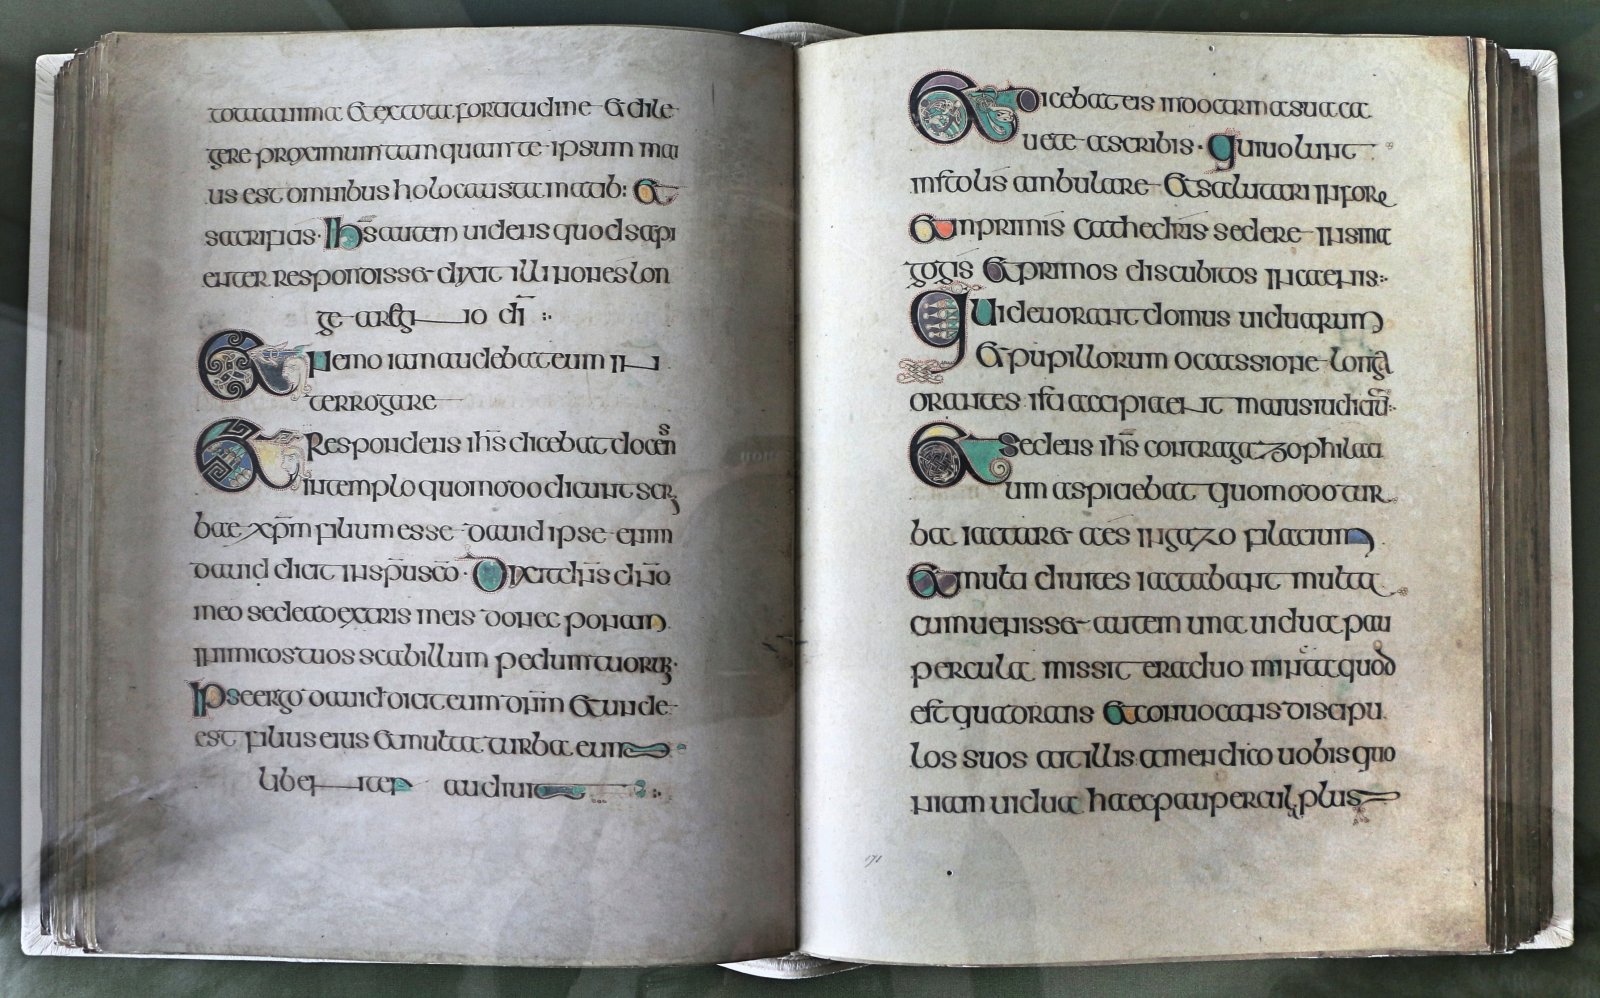 tota anima & ex tota fortitudine & dile
gere proximum tamquam te ipsum mai
us est omnibus holocaustamatib: &
sacrificiis · Ihs autem uidens quod sapi
enter respondisset dixit illi non es lon
ge a regno di :·
& nemo iam audebat eum in
terrogare
& Respondens ihs dicebat docens
in templo quomodo dicunt scri
bae xpm filium esse dauid ipse enim
dauid dicit in spu sco · Dixit dns dno
meo sede a dextris meis donec ponam
inimicos tuos scabillum pedum tuorum ·
Ipse ergo dauid dicit eum dnm & unde
est filius eius & multa turba eum
libenter audiuit :·
& dicebat eis in doctrina sua ca
uete a scribis · qui uolunt
in stolis ambulare & salutari in foro
& in primis cathedris sedere in sina
gogis & primos discubitos in caenis :·
qui deuorant domus uiduarum
& pupillorum occassione longa
orantes isti accipiaent maius iudiciu :·
& sedens ihs contra gazophilaci
um aspiciebat quomodo tur
ba iactaret aes in gazofilacium
& multi diuites iactabant multa
cum uenisset autem una uidua pau
percula missit era duo minuta quod
est quadrans & conuocans discipu
los suos ait illis amen dico uobis quo
niam uidua haec paupercul plus
171